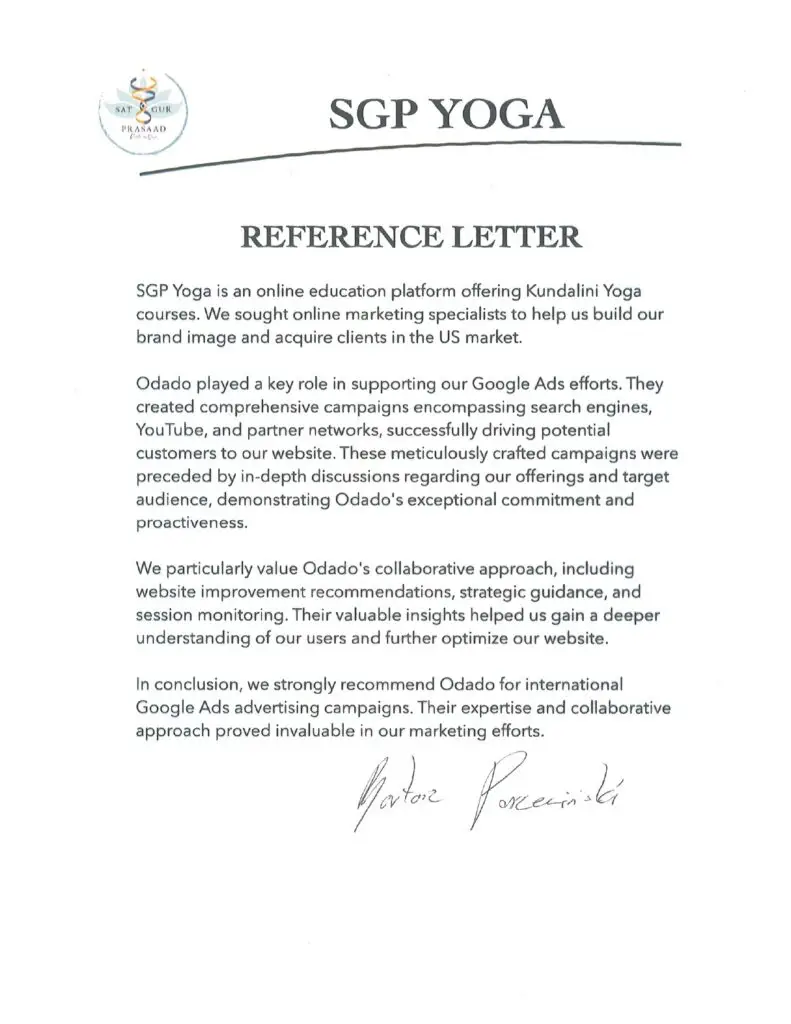 SAT GUR
PRASAAD
SGP YOGA
REFERENCE LETTER
SGP Yoga is an online education platform offering Kundalini Yoga
courses. We sought online marketing specialists to help us build our
brand image and acquire clients in the US market.
Odado played a key role in supporting our Google Ads efforts. They
created comprehensive campaigns encompassing search engines,
YouTube, and partner networks, successfully driving potential
customers to our website. These meticulously crafted campaigns were
preceded by in-depth discussions regarding our offerings and target
audience, demonstrating Odado's exceptional commitment and
proactiveness.
We particularly value Odado's collaborative approach, including
website improvement recommendations, strategic guidance, and
session monitoring. Their valuable insights helped us gain a deeper
understanding of our users and further optimize our website.
In conclusion, we strongly recommend Odado for international
Google Ads advertising campaigns. Their expertise and collaborative
approach proved invaluable in our marketing efforts.